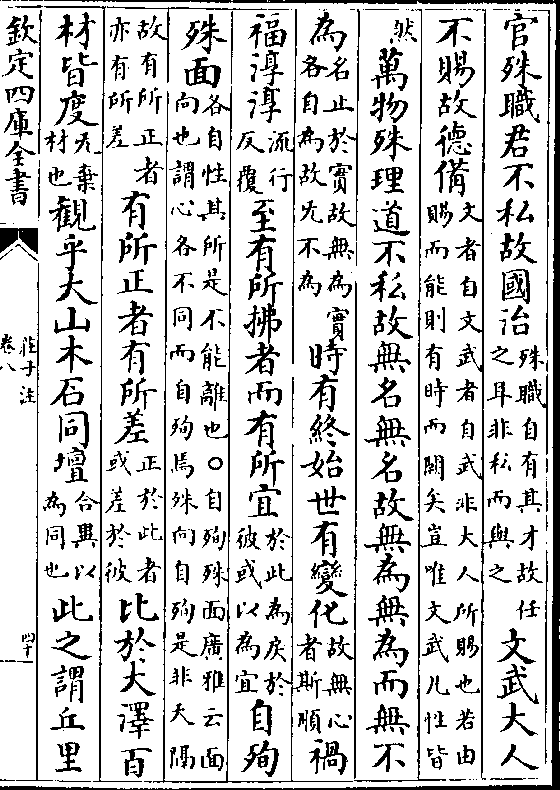 官殊職君不私故國治殊職自有其才故任之耳非私而與之文武大人
不賜故德備文者自文武者自武非大人所賜也若由賜而能則有時而闕矣豈唯文武凡性皆
然萬物殊理道不私故無名無名故無為無為而無不
為名止於實故無為實各自為故无不為時有終始世有變化故無心者斯順禍
福淳淳流行反覆至有所拂者而有所宜於此為戾於彼或以為宜自殉
殊面各自性其所是不能離也○自殉殊面廣雅云面向也謂心各不同而自殉焉殊向自殉是非天隔
故有所正者亦有所差有所正者有所差正於此者或差於彼比於大澤百
材皆度无棄材也觀乎大山木石同壇合異以為同也此之謂丘里
欽定四庫全書
莊子注
卷八
四十